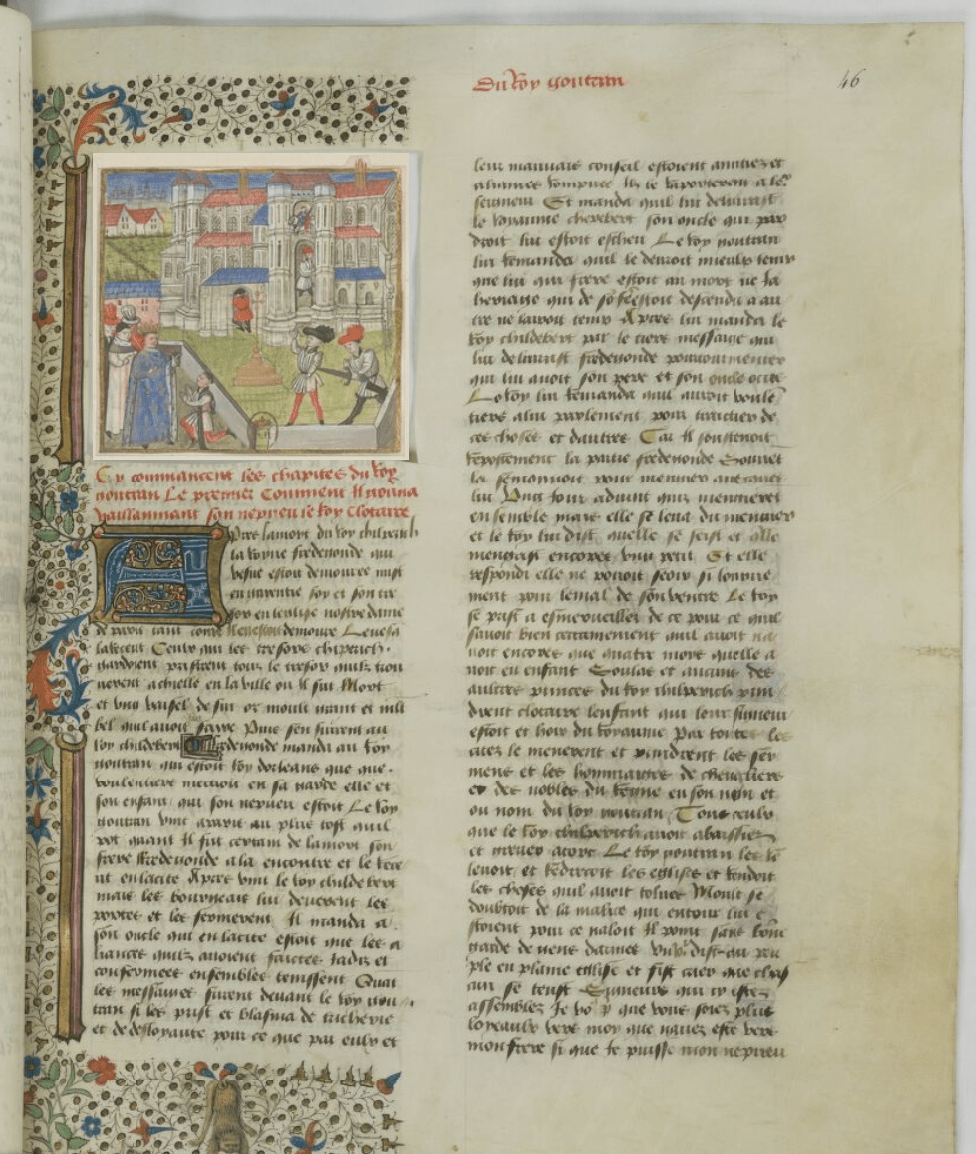 Du Roy gontran
46
Cy commancent les chapitres du Roy
gontran Le premier Comment Il
vaillanment son nepueu le roy Clotaire
Apres la mort du Roy chilperich
la Royne fredegonde qui
vefue estoit demouree mist
en garentie soy et son tre
sor en leglise nostre dame
de paris demoure
Ceulx qui les tresors chilperich
gardoient pristrent tous le tresor quilz trou
uerent achielle en la ville ou il fut Mort
et vng vaisel de fin or moult grant et mlt
bel quil auoit fayre Puis sen furent au
roy childebert fredegonde manda au Roy
gontran qui estoit Roy dorleans que
voulentiers mectroit en sa garde elle et
son enfant qui son nepueu estoit Le Roy
gontran vint a paris au plus tost quil
pot quant Il fut certain de la mort son
frere fredegonde ala encontre et le rece
ut en la cite Apres vint le roy childebert
mais les bourgeois lui deueerent les
portes et les fermerent Il manda a
son oncle qui en la cite estoit que les a
liances quilz auoient faictes Jadiz et
confermees ensembles tenissent Quant
les messaiges furent deuant le roy gon
tran si les prist et blasma de tricherie
et de desloyaute pour ce que par eulx et
leur mauuais conseil estoient
aliances rompues Ilz le raporterent a le
seigneur Et manda quil lui deliurast
le royaume cherebert son oncle qui par
droit lui estoit escheu Le Roy gontran
lui remanda quil le deuoit mieulx tenir
que lui qui frere estoit au mort ne la
heritaige qui de so estoit descendu a au
tre ne lairoit tenir Apres lui manda le
Roy childebert par le tiers messaige qui
lui deliurast fredegonde pour tourmenter
qui lui auoit son pere et son oncle occis
Le Roy lui remanda quil auroit voulē
tiers a lui parlement pour traictier de
ces choses et dautres Car Il soustenoit
la partie fredegonde Souuet
la semonnoit pour mengier auecques
lui Vng jour aduint quilz mengerent
ensemble mais elle se leua du mengier
et le Roy lui dist quelle se seist et elle
mengast encores vng petit Et elle
respondi elle ne pouoit seoir si longue
ment pour lenfal de son ventre Le Roy
se prist a esmerueillier de ce pour ce quil
sauoit bien certainement quil auoit na
uoit encores que quatre mois quelle a
uoit eu enfant Soulas et aucuns des
aultres princes du Roy chilperich prin
drent clotaire lenfant qui leur seigneur
estoit et hoir du Royaume Par toutes les
citez le menerent et prindrent les ser
mens et les hommaiges de cheualiers
et des nobles du regne en son nom et
ou nom du Roy gontran Tous ceulx
que le Roy chilperich auoit abaissiez
et greuez a tort Le Roy gontran les re
leuoit et redrecoit les eglises et rendoit
les choses quil auoit tolues Moult se
doubtoit de la malice qui entour lui e
stoient pour ce naloit Il point sans bōne
garde de gens darmes dist au peu
ple en plaine eglise et fist crier que chas
cun se teust Seigneurs qui cy estez
assemblez Je vo p que vous soiez plus
loyaulx vers moy que nauez este vers
mon frere si que Je puisse mon nepueu